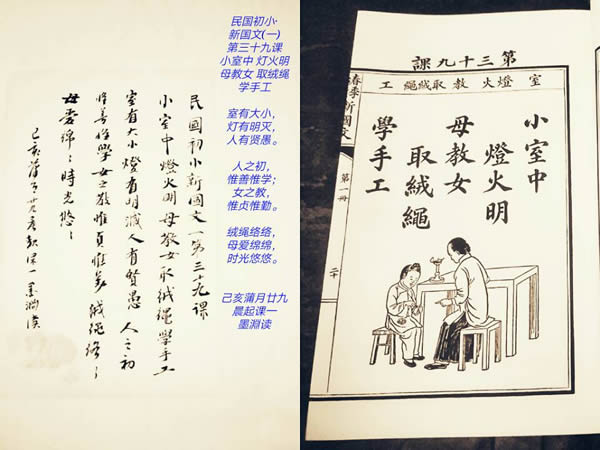 民國初小新國文一第三十九课
小室中燈火明母教女取絨繩學手工
室有大小燈有明滅人有賢愚 人之初
惟善惟學女之教惟貞惟勤 絨繩络々
母愛綿々時光悠々
己亥蒲月廿九晨起课一墨淵
民国初小·
新国文(一)
第三十九课
小室中 灯火明
母教女 取绒绳
学手工
室有大小，
灯有明灭，
人有贤愚。
人之初，
惟善惟学；
女之教，
惟贞惟勤。
绒绳络络，
母爱绵绵，
时光悠悠。
己亥蒲月廿九
晨起课一
墨淵读
第三十九課
室燈火教取絨繩工
小室中
燈火明
母教女
取絨繩
學手工
春季新國文
第一册
二十